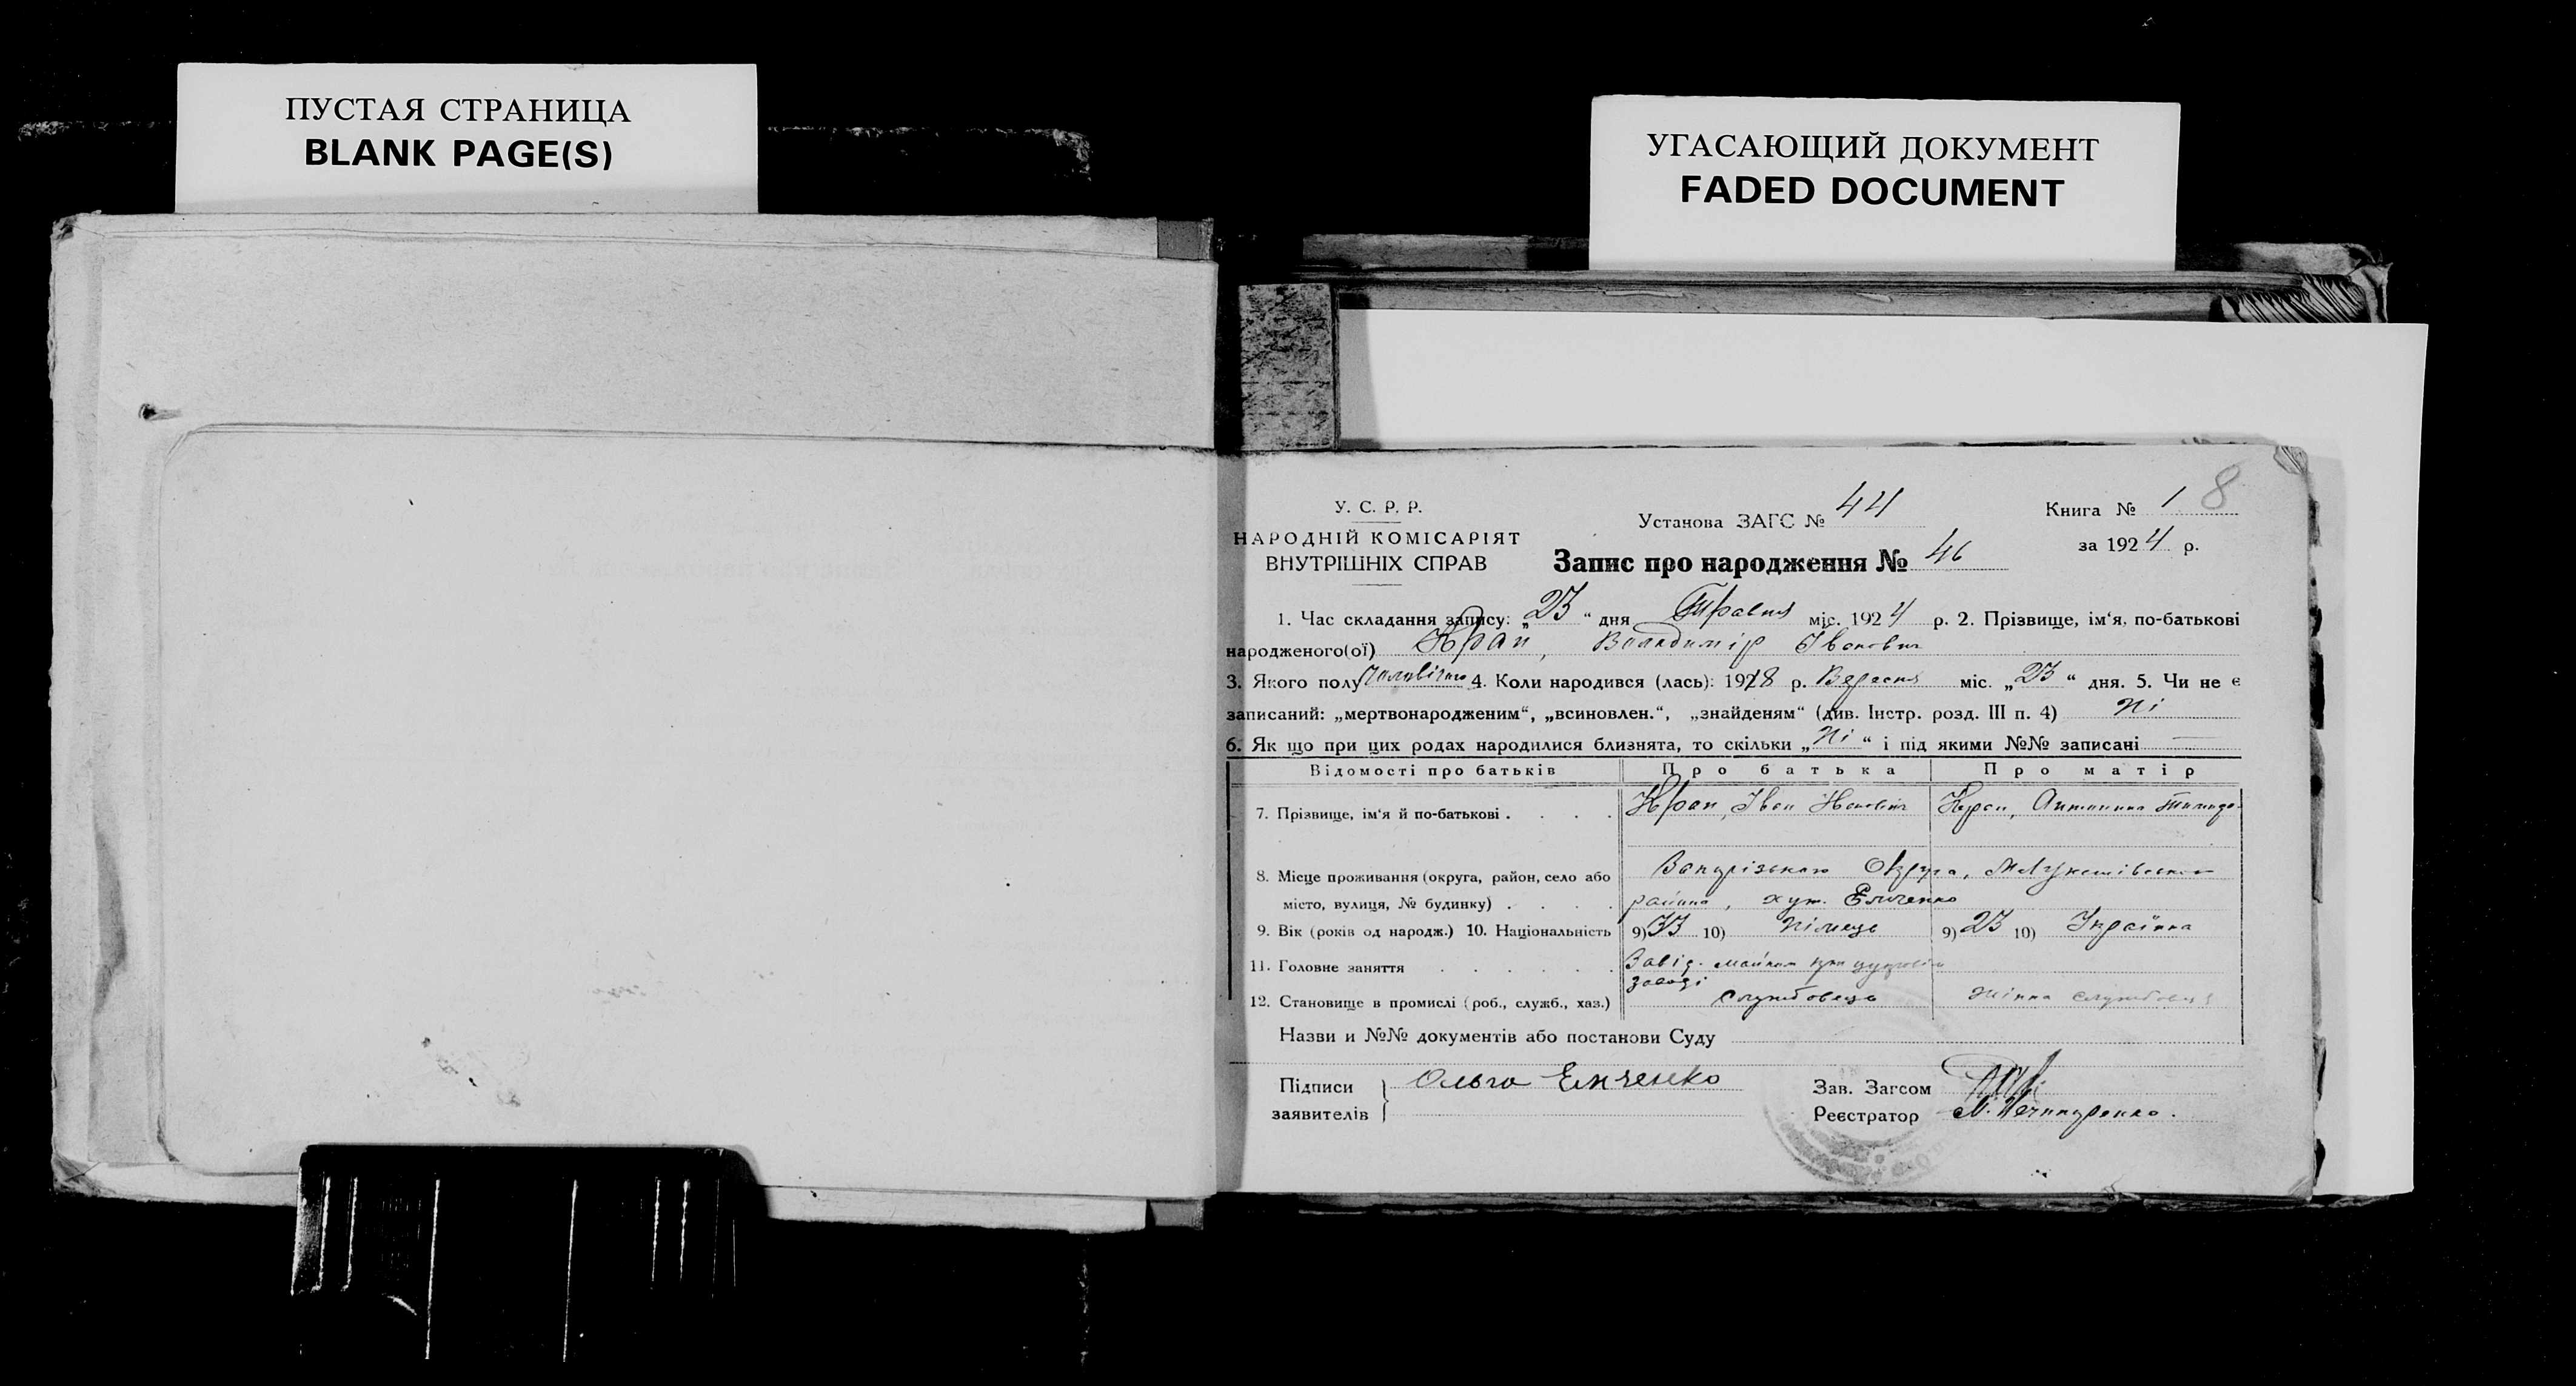 ПУСТАЯ СТРАНИЦА
BLANK PAGE(S)
УГАСАЮЩИЙ ДОКУМЕНТ
FADED DOCUMENT
У. С. Р. Р.
НАРОДНІЙ КОМІСАРІЯТ
ВНУТРІШНІХ СПРАВ
Установа ЗАГС № 44
Книга № 1 8
за 1924 р.
Запис про народження № 46
1. Час складання запису: „23“ дня Травня міс. 1924 р. 2. Прізвище, ім‘я, по-батькові
народженого(ої) Кран, Володимір Іванович
3. Якого полу 4. Коли народився (лась): 1918 р. Вересня міс. „23“ дня. 5. Чи не є
записаний: „мертвонародженим“, „всиновлен.“, „знайденям“ (див. Інстр. розд. III п. 4) Ні
6. Як що при цих родах народилися близнята, то скільки „Ні“ і під якими №№ записані —
Відомості про батьків Про батька Про матір
7. Прізвище, ім‘я й по-батькові . . . . Кран, Іван Кран, Антонина
8. Місце проживання (округа, район, село або Округа,
місто, вулиця, № будинку) . . . . района, хут. Емченко
9. Вік (років од народж.) 10. Національність 9) 33 10) Німець 9) 23 10) Українка
11. Головне заняття . . . . . . Завід.
заводі
12. Становище в промислі (роб., служб., хаз.) Службовець Жінка службовця
Назви и №№ документів або постанови Суду
Підписи Ольга Емченко Зав. Загсом
заявителів Реєстратор М. Нечипуренко.